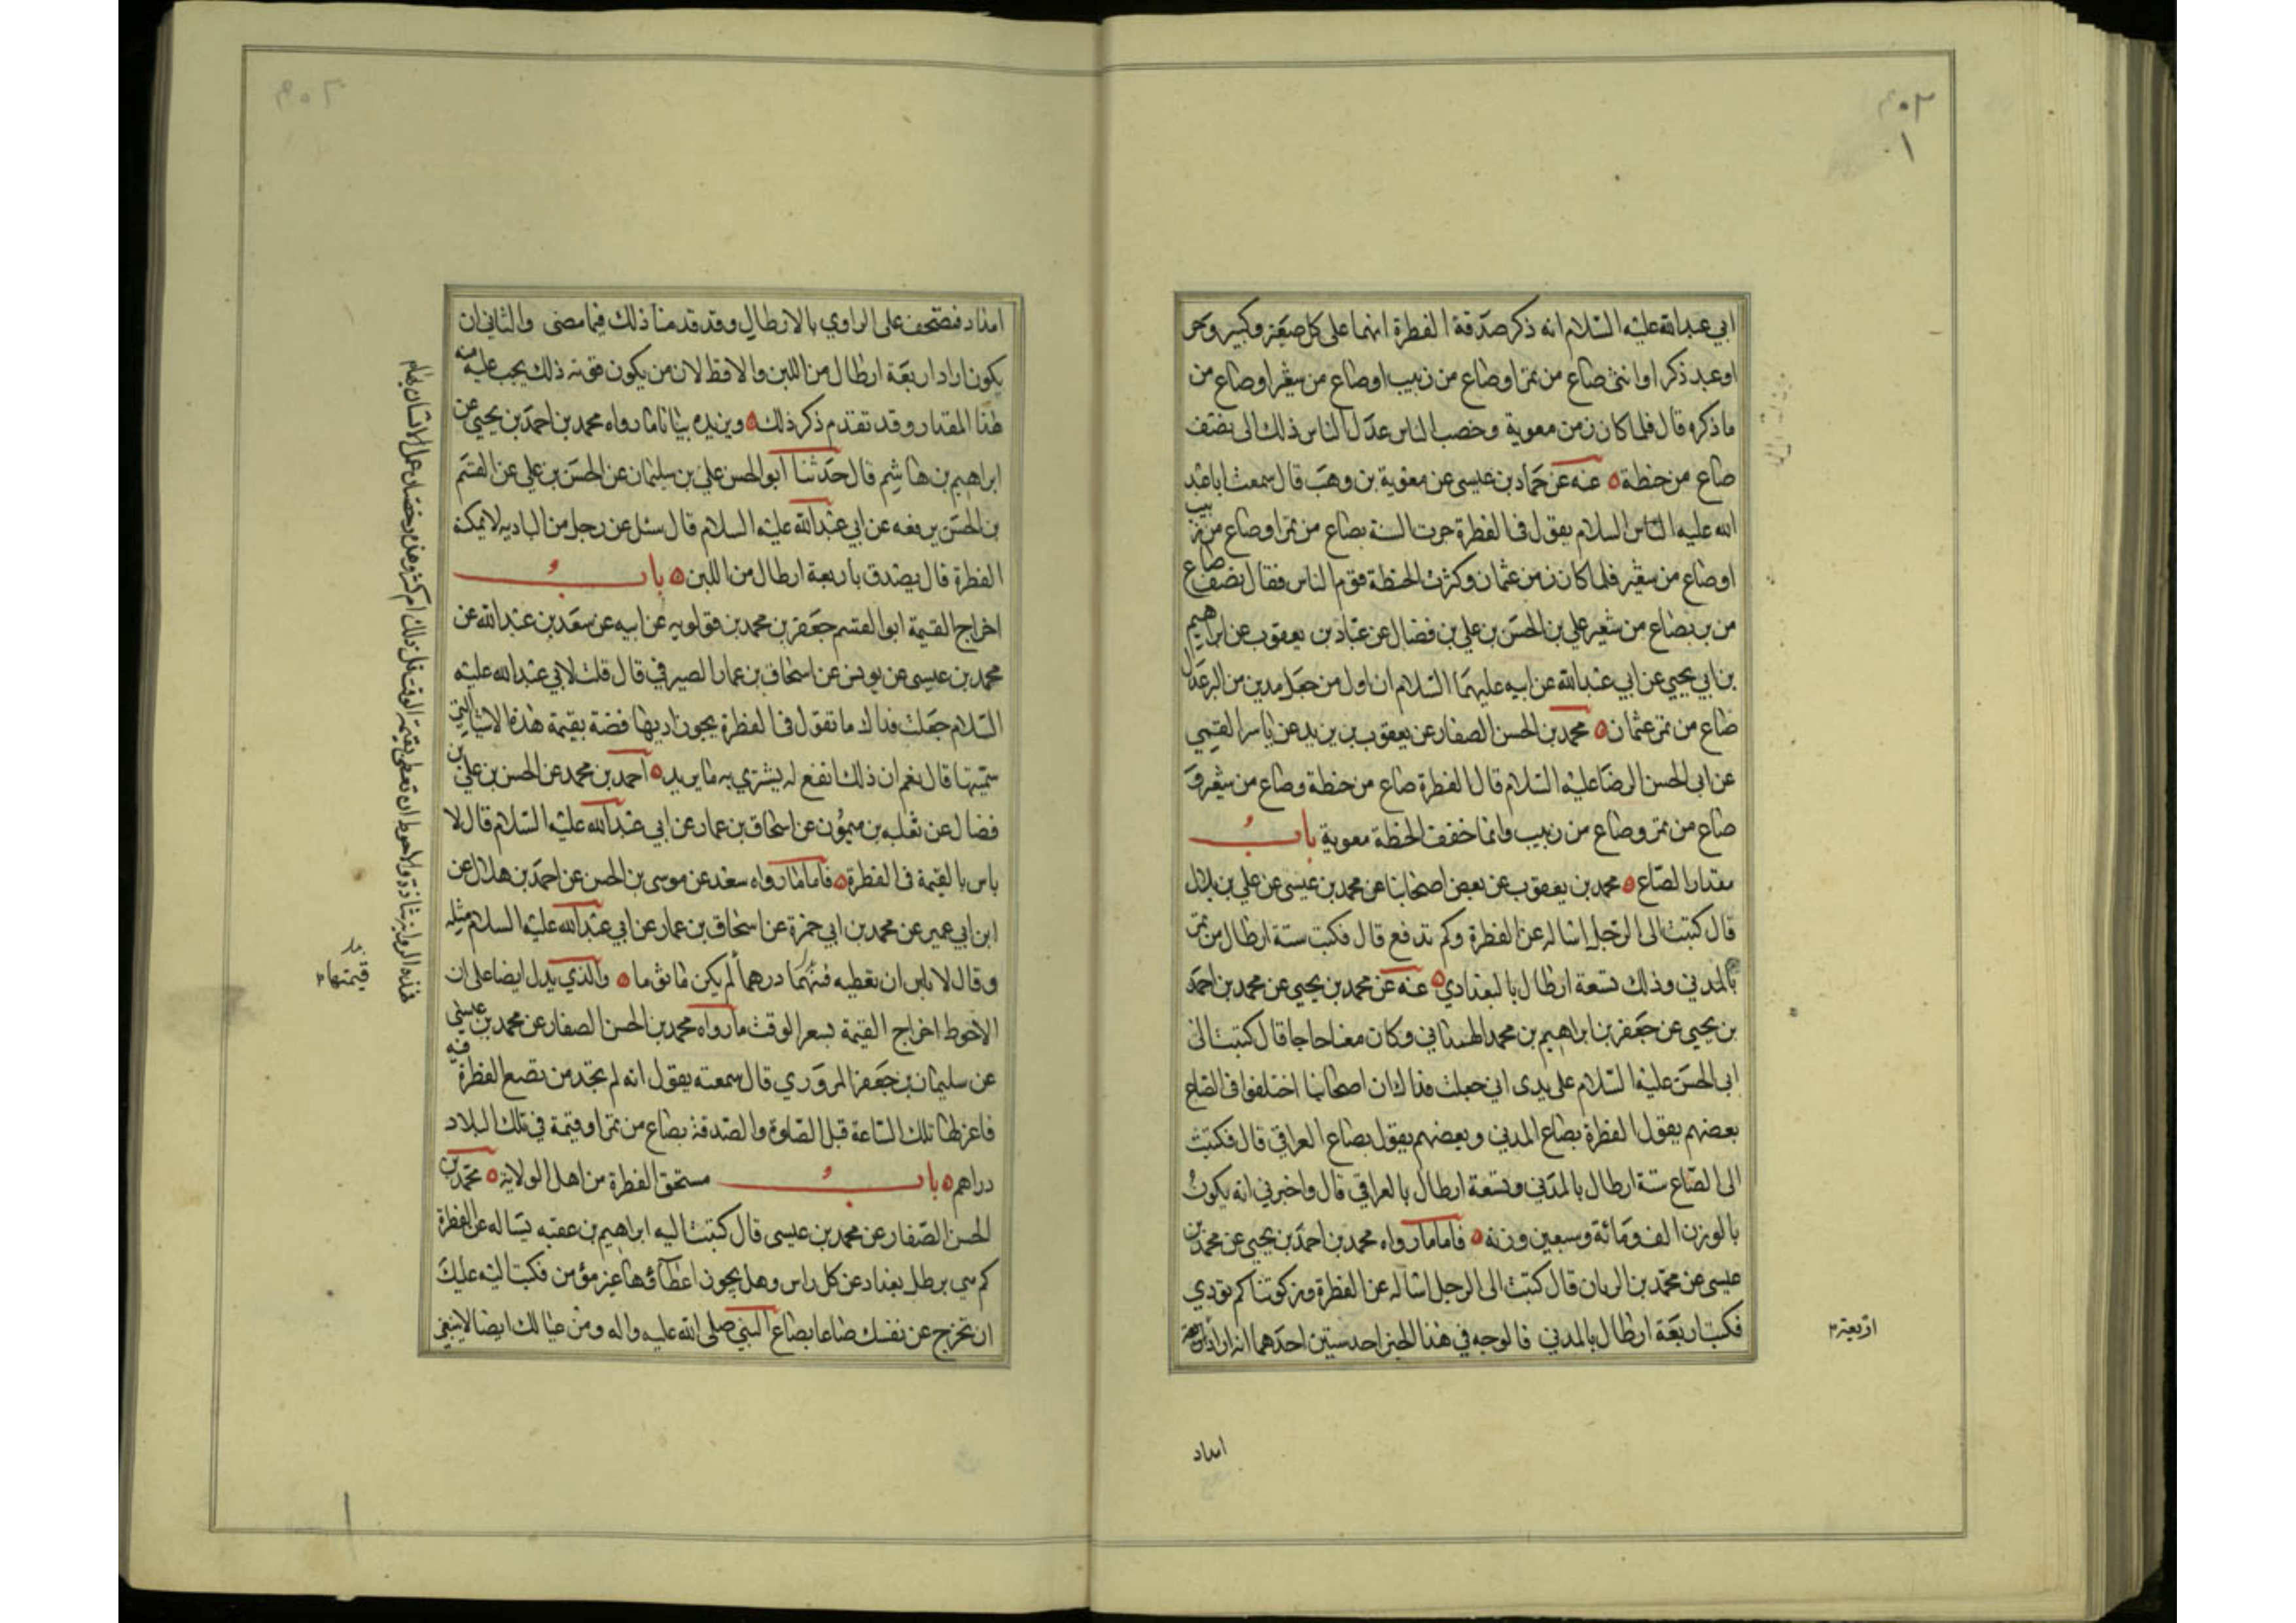 ابي عبدالله عليه السلام انه ذكر صدقة الفطرة انها على كل صغير وكبير وحر
او عبد ذكر او انثى صاع من تمر او صاع من زبيب او صاع من شعير او صاع من
ما ذكره قال فلما كان زمن معوية وخصب الناس عدل الناس ذلك الى نصف
صاع من حنطة ه عنه عن حماد بن عيسى عن معوية بن وهب قال سمعت ابا عبد
الله عليه السلام يقول في الفطرة جرت السنة بصاع من تمر او صاع من زبيب
او صاع من شعير فلما كان زمن عثمان وكثرت الحنطة قوم الناس فقال نصف صاع
من بر بصاع من شعير علي بن الحسن بن علي بن فضال عن عباد بن يعقوب عن ابراهيم
بن ابي يحيى عن ابي عبدالله عن ابيه عليهما السلام ان اول من جعل مدين من البر عدل
صاع من تمر عثمان ه محمد بن الحسن الصفار عن يعقوب بن يزيد عن ياسر القمي
عن ابي الحسن الرضا عليه السلام قال الفطرة صاع من حنطة وصاع من شعير و
صاع من تمر وصاع من زبيب وانما خفف الحنطة معوية باب
مقدار الصاع ه محمد بن يعقوب عن بعض اصحابنا عن محمد بن عيسى عن علي بن بلال
قال كتبت الى الرجل اساله عن الفطرة وكم تدفع قال فكتب ستة ارطال من تمر
بالمدني وذلك تسعة ارطال بالبغدادي ه عنه عن محمد بن يحيى عن محمد بن احمد
بن يحيى عن جعفر بن ابراهيم بن محمد الهمداني وكان معنا حاجا قال كتبت الى
ابي الحسن عليه السلام على يدي ابي جعلت فداك ان اصحابنا اختلفوا في الصاع
بعضهم يقول الفطرة بصاع المدني وبعضهم يقول بصاع العراقي قال فكتب
الى الصاع ستة ارطال بالمدني وتسعة ارطال بالعراقي قال واخبرني انه يكون
بالوزن الف ومائة وسبعين وزنة ه فاما ما رواه محمد بن احمد بن يحيى عن محمد بن
عيسى عن محمد بن الريان قال كتبت الى الرجل اساله عن الفطرة وزكوتها كم تودي
فكتب اربعة ارطال بالمدني فالوجه في هذا الخبر احد شيئين احدهما انه اراد اربعة
اربعة
امداد
امداد فتصحف على الراوي بالارطال وقد قدمنا ذلك فيما مضى والثاني ان
يكون اراد اربعة ارطال من اللبن والاقط لان من يكون قوته ذلك يجب عليه منه
هذا المقدار وقد تقدم ذكر ذلك ه ويزيده بيانا ما رواه محمد بن احمد بن يحيى عن
ابراهيم بن هاشم قال حدثنا ابو الحسن علي بن سليمان عن الحسن بن علي عن القسم
بن الحسن يرفعه عن ابي عبدالله عليه السلام قال سئل عن رجل من الباديه لا يمكنه
الفطرة قال يصدق باربعة ارطال من اللبن ه باب
اخراج القيمة ابو القسم جعفر بن محمد بن قولويه عن ابيه عن سعد بن عبدالله عن
محمد بن عيسى عن يونس عن اسحاق بن عمار الصيرفي قال قلت لابي عبدالله عليه
السلام جعلت فداك ما تقول في الفطرة يجوز اديها فضة بقيمة هذه الاشيا التي
سميتها قال نعم ان ذلك انفع له يشتري به ما يريد ه احمد بن محمد عن الحسن بن علي بن
فضال عن ثعلبه بن ميمون عن اسحاق بن عمار عن ابي عبدالله عليه السلام قال لا
باس بالقيمة في الفطرة ه فاما ما رواه سعد عن موسى بن الحسن عن احمد بن هلال عن
ابن ابي عمير عن محمد بن ابي حمزة عن اسحاق بن عمار عن ابي عبدالله عليه السلام مثله
وقال لا باس ان تعطيه قيمتها درهما ه والذي يدل ايضا على ان
الاحوط اخراج القيمة بسعر الوقت ما رواه محمد بن الحسن الصفار عن محمد بن عيسى
عن سليمان بن جعفر المروزي قال سمعته يقول انه لم تجد من تضع الفطرة فيه
فاعزلها تلك الساعة قبل الصلوة والصدقة بصاع من تمر او قيمة في تلك البلاد
دراهم ه باب مستحق الفطرة من اهل الولاية ه محمد بن
الحسن الصفار عن محمد بن عيسى قال كتبت اليه ابراهيم بن عقبه يساله عن الفطرة
كم هي برطل بغداد عن كل راس وهل يجوز اعطاؤها غير مؤمن فكتب اليه عليك
ان تخرج عن نفسك صاعا بصاع النبي صلى الله عليه واله ومن عيالك ايضا لا ينبغي
فهذه الرواية شاذة والاحوط ان تعطي بقيمة الوقت قل ذلك ام كثر
قيمتها